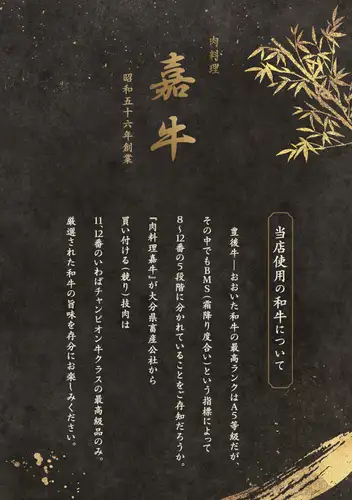 肉料理
嘉牛
昭和五十六年創業
当店使用の和牛について
豊後牛―おおいた和牛の最高ランクはA5等級だが
その中でもBMS(霜降り度合い)という指標によって
8〜12番の5段階に分かれていることをご存知だろうか。
『肉料理嘉牛』が大分県畜産公社から
買い付ける(競り)枝肉は
11、12番のいわばチャンピオン牛クラスの最高級品のみ。
厳選された和牛の旨味を存分にお楽しみください。